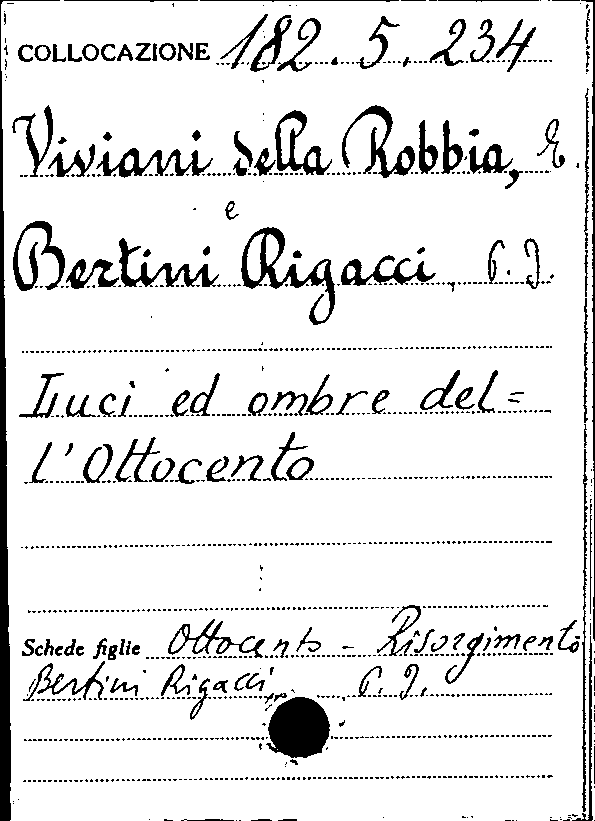 COLLOCAZIONE 182.5.234
Viviani della Robbia, E.
e
Bertini Rigacci, P. J.
Luci ed ombre del=
l'Ottocento
Schede figlie Ottocento - Risorgimento
Bertini Rigacci, P. J.